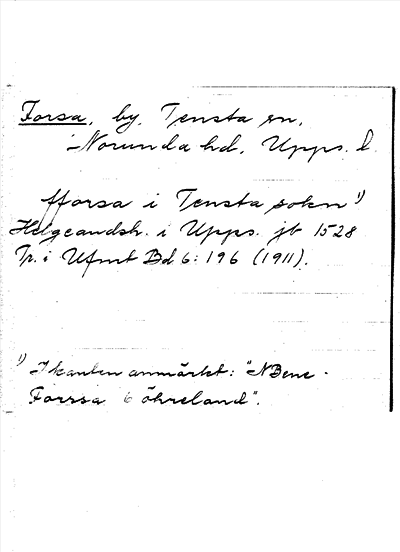 Forsa, by, Tensta sn,
Norunda hd, Upps. l.
fforsa i Tensta sokn 1)
Helgeandsh. i Upps. jb 1528
Tr. i Ufmt Bd 6: 196 (1911).
1) I kanten anmärkt: "NBene -
Forrsa 6 öhreland".